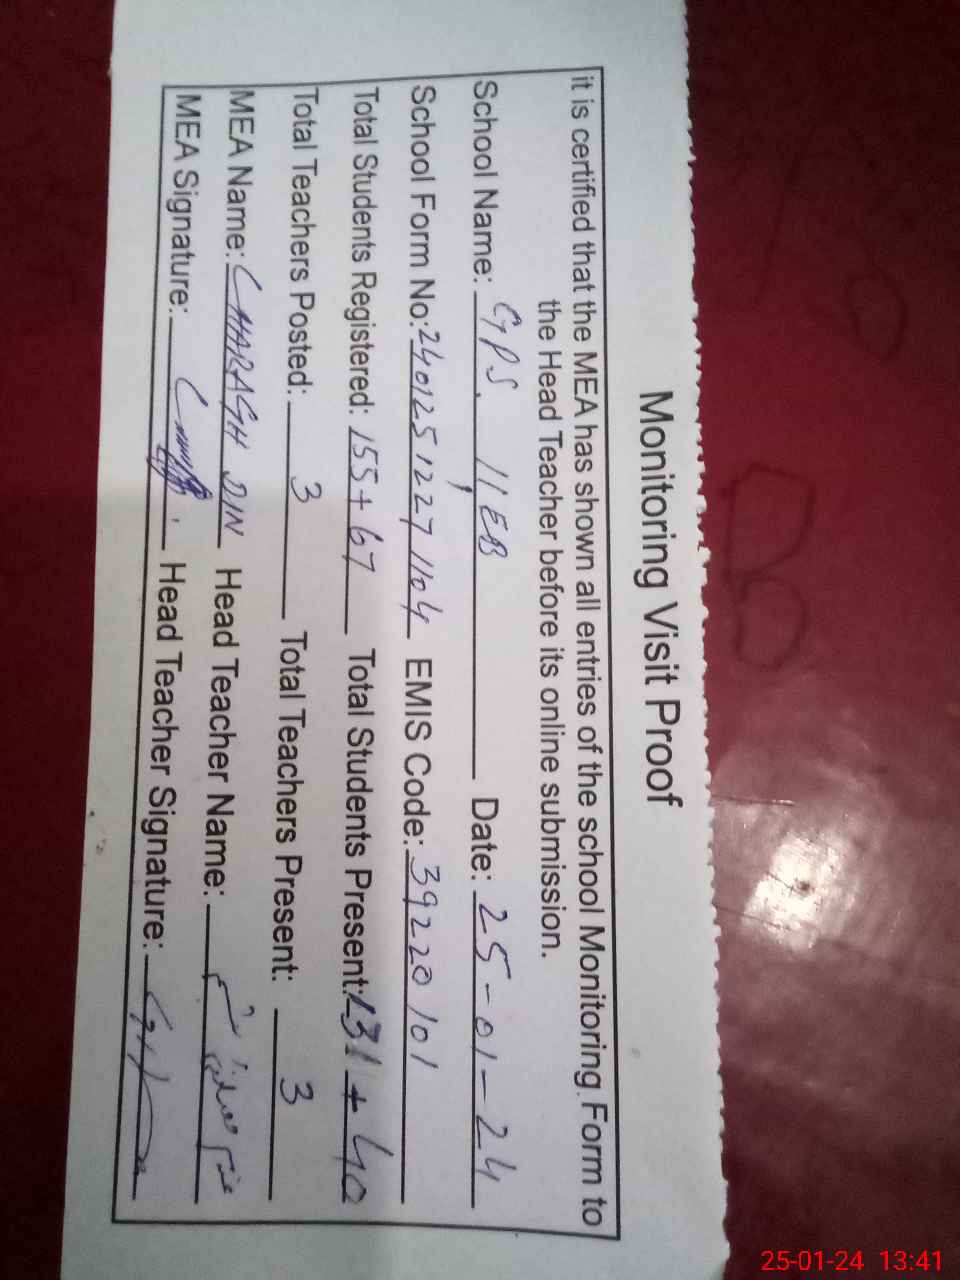 Monitoring Visit Proof
it is certified that the MEA has shown all entries of the school Monitoring Form to
the Head Teacher before its online submission.
School Name: GPS. 11, EB Date: 25-01-24
School Form No: 240125 1227 1104 EMIS Code: 39220101
Total Students Registered: 155+67 Total Students Present: 131+40
Total Teachers Posted: 3 Total Teachers Present: 3
MEA Name: CHARAGH DIN Head Teacher Name:
MEA Signature: Head Teacher Signature:
25-01-24 13:41